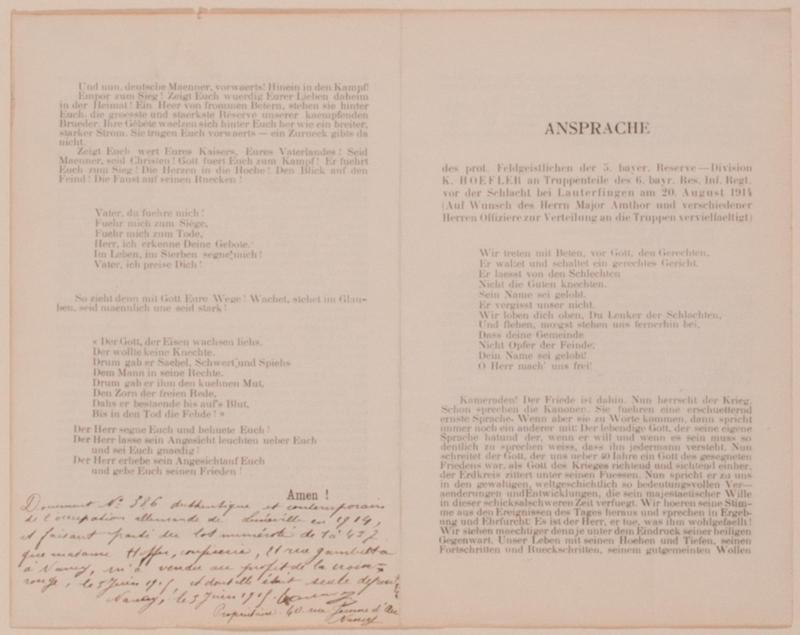 Und nun, deutsche Maenner, vorwaerts! Hinein in den Kampf!
Empor zum Sieg! Zeigt Euch wuerdig Eurer Lieben daheim
in der Heimat! Ein Heer von frommen Betern, stehen sie hinter
Euch: die groesste und staerkste Reserve unserer kaempfenden
Brueder. Ihre Gebete waelzen sich hinter Euch her wie ein breiter,
starker Strom. Sie tragen Euch vorwaerts — ein Zurueck gibts da
nicht.
Zeigt Euch wert Eures Kaisers, Eures Vaterlandes! Seid
Maenner, seid Christen! Gott fuert Euch zum Kampf! Er fuehrt
Euch zum Sieg! Die Herzen in die Hoehe! Den Blick auf den
Feind! Die Faust auf seinen Ruecken!
Vater, du fuehre mich!
Fuehr mich zum Siege,
Fuehr mich zum Tode,
Herr, ich erkenne Deine Gebote.
Im Leben, im Sterben segne mich!
Vater, ich preise Dich!
So zieht denn mit Gott Eure Wege! Wachet, stehet im Glau-
ben, seid maennlich une seid stark!
« Der Gott, der Eisen wachsen liehs,
Der wollte keine Knechte.
Drum gab er Saebel, Schwert und Spiehs
Dem Mann in seine Rechte.
Drum gab er ihm den kuehnen Mut,
Den Zorn der freien Rede,
Dahs er bestaende bis auf's Blut,
Bis in den Tod die Fehde! »
Der Herr segne Euch und behuete Euch!
Der Herr lasse sein Angesicht leuchten ueber Euch
und sei Euch gnaedig!
Der Herr erhebe sein Angesicht auf Euch
und gebe Euch seinen Frieden!
Amen!
Document No 386 authentique et contemporain
de l'occupation allemande de Lunéville en 1914,
et faisant partie du lot numéroté de 1 à 427
que madame Hoffer, confiserie, 11 rue gambetta
à Nancy, m'a vendu au profit de la croix-
rouge, le 5 Juin 1915 et dont elle était seule
Nancy, le 5 Juin 1915.
Propriétaire 40 rue Jeanne d'Arc
Nancy
ANSPRACHE
des prot. Feldgeistlichen der 5. bayer. Reserve — Division
K. HOEFLER an Truppenteile des 6. bayr. Res. Inf. Regt.
vor der Schlacht bei Lauterfingen am 20. August 1914
(Auf Wunsch des Herrn Major Amthor und verschiedener
Herren Offiziere zur Verteilung an die Truppen vervielfaeltigt)
Wir treten mit Beten, vor Gott, den Gerechten,
Er waltet und schaltet ein gerechtes Gericht.
Er laesst von den Schlechten
Nicht die Guten knechten.
Sein Name sei gelobt.
Er vergisst unser nicht.
Wir loben dich oben, Du Lenker der Schlachten,
Und flehen, moegst stehen uns fernerhin bei,
Dass deine Gemeinde
Nicht Opfer der Feinde;
Dein Name sei gelobt!
O Herr mach' uns frei!
Kameraden! Der Friede ist dahin. Nun herrscht der Krieg.
Schon sprechen die Kanonen. Sie fuehren eine erschuetternd
ernste Sprache. Wenn aber sie zu Worte kommen, dann spricht
immer noch ein anderer mit: Der lebendige Gott, der seine eigene
Sprache hat und der, wenn er will und wenn es sein muss so
deutlich zu sprechen weiss, dass ihn jedermann versteht. Nun
schreitet der Gott, der uns ueber 40 Iahre ein Gott des gesegneten
Friedens war, als Gott des Krieges richtend und sichtend einher,
der Erdkreis zittert unter seinen Fuessen. Nun spricht er zu uns
in den gewaltigen, weltgeschichtlich so bedeutungsvollen Ver-
aenderungen und Entwicklungen, die sein majestaetischer Wille
in dieser schicksalschweren Zeit verfuegt. Wir hoeren seine Stim-
me aus den Ereignissen des Tages heraus und sprechen in Ergeb-
ung und Ehrfurcht: Es ist der Herr, er tue, was ihm wohlgefaellt!
Wir stehen maechtiger denn je unter dem Eindruck seiner heiligen
Gegenwart. Unser Leben mit seinen Hoehen und Tiefen, seinen
Fortschritten und Rueckschritten, seinem gutgemeinten Wollen